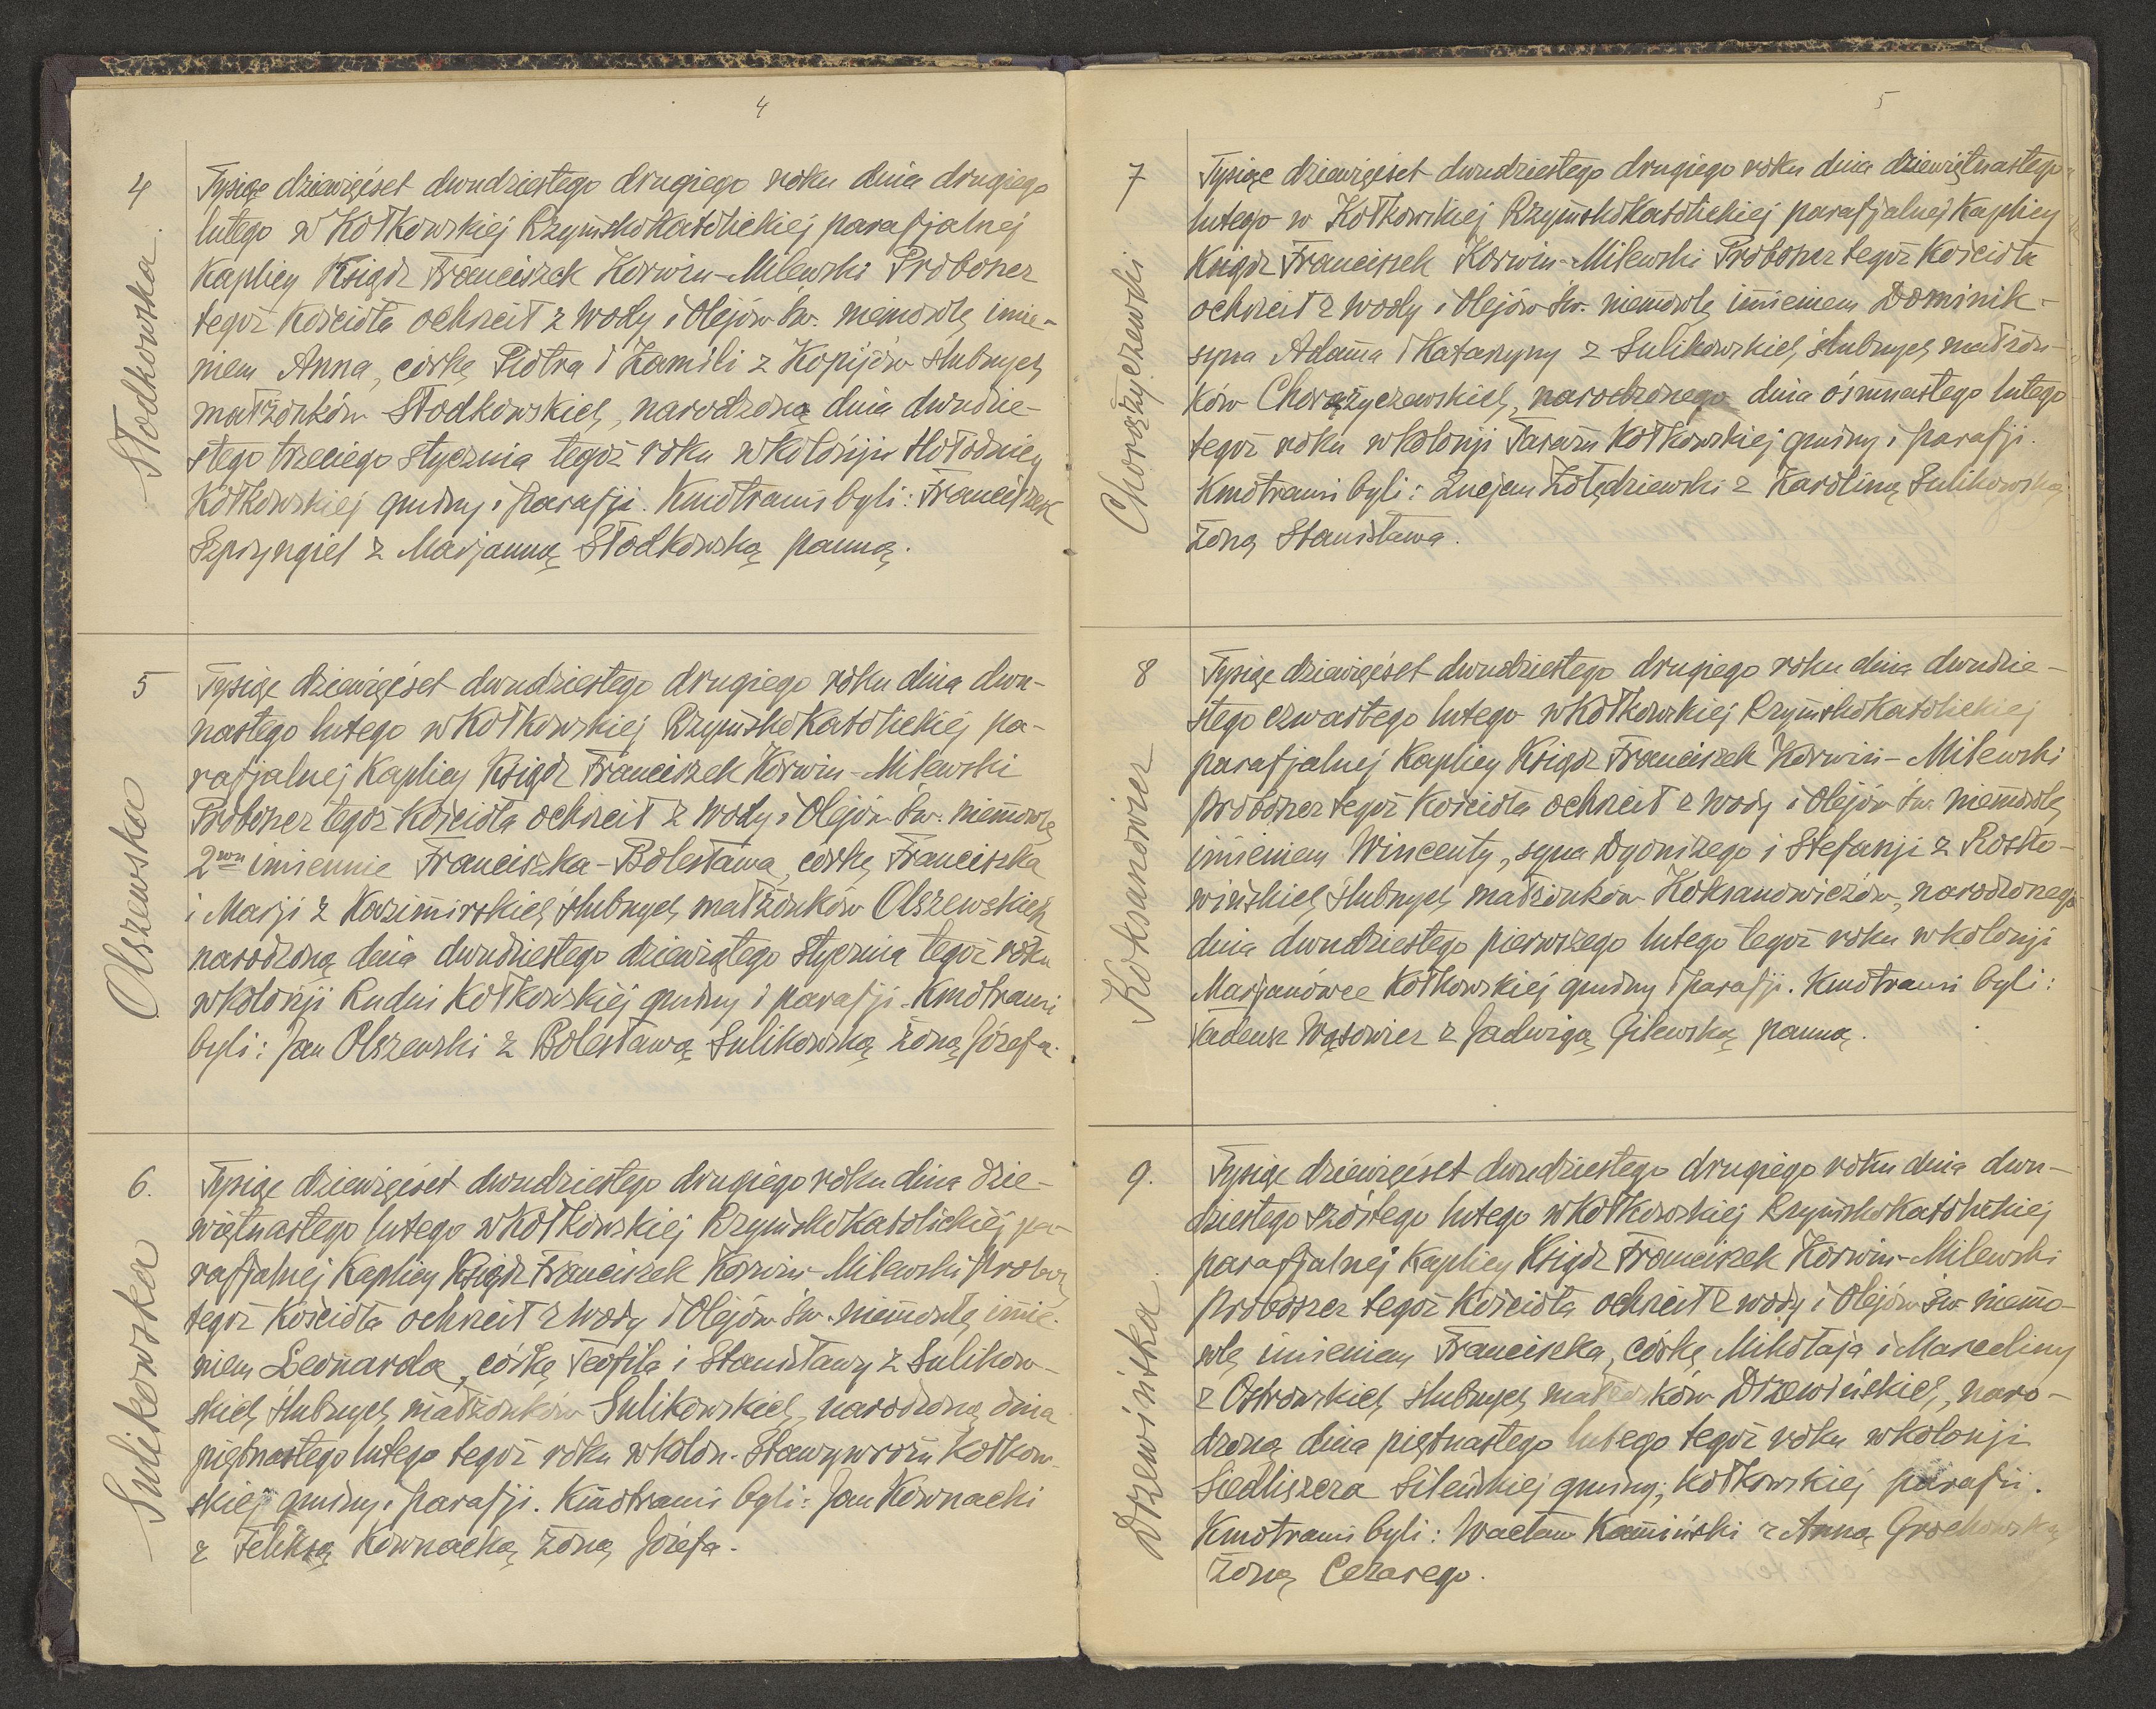 4
4
Słodkowska.
Tysiąc dziewięćset dwudziestego drugiego roku dnia drugiego
lutego w Kołkowskiej RzymskoKatolickiej parafjalnej
Kaplicy Ksiądz Franciszek Korwin-Milewski Proboszcz
tegoż Kościoła ochrzcił z wody i Olejów Św. niemowlę imie-
niem Anna, córkę Piotra i Kamili z Kopijów ślubnych
małżonków Słodkowskich, narodzoną dnia dwudzie-
stego trzeciego stycznia tegoż roku w kolonji Hołodnicy
Kołkowskiej gminy i parafji. Kmotrami byli: Franciszek
Szpryngiel z Marjanną Słodkowską panną.
5
Olszewska
Tysiąc dziewięćset dwudziestego drugiego roku dnia dwu-
nastego lutego w Kołkowskiej RzymskoKatolickiej pa-
rafjalnej Kaplicy Ksiądz Franciszek Korwin-Milewski
Proboszcz tegoż Kościoła ochrzcił z wody i Olejów Św. niemowlę
2wu imiennie Franciszka-Bolesława, córkę Franciszka
i Marji z Kazimirskich ślubnych małżonków Olszewskich
narodzoną dnia dwudziestego dziewiątego stycznia tegoż roku
w kolonji Rudni Kołkowskiej gminy i parafji. Kmotrami
byli: Jan Olszewski z Bolesławą Sulikowską żoną Józefa.
6.
Sulikowska
Tysiąc dziewięćset dwudziestego drugiego roku dnia dzie-
więtnastego lutego w Kołkowskiej RzymskoKatolickiej pa-
rafjalnej Kaplicy Ksiądz Franciszek Korwin-Milewski Probosz
tegoż Kościoła ochrzcił z wody i Olejów Św. niemowlę imie-
niem Leonarda, córkę Teofila i Stanisławy z Sulikow-
skich ślubnych małżonków Sulikowskich, narodzoną dnia
piętnastego lutego tegoż roku w kolon. Kołkow-
skiej gminy i parafji. Kmotrami byli: Jan Kownacki
z Feliksą Kownacką żoną Józefa.
5
7
Chorążyczewski
Tysiąc dziewięćset dwudziestego drugiego roku dnia dziewiętnastego
lutego w Kołkowskiej RzymskoKatolickiej parafjalnej Kaplicy
Ksiądz Franciszek Korwin-Milewski Proboszcz tegoż Kościoła
ochrzcił z wody i Olejów Św. niemowlę imieniem Dominik-
syna Adama i Katarzyny z Sulikowskich ślubnych małżon-
ków Chorążyczewskich, narodzonego dnia ośmnastego lutego
tegoż roku w kolonji Taraż Kołkowskiej gminy i parafji.
Kmotrami byli: Lucjan Żołędziewski z Karoliną Sulikowską
żoną Stanisława.
8
Koksanowicz
Tysiąc dziewięćset dwudziestego drugiego roku dnia dwudzie-
stego czwartego lutego w Kołkowskiej RzymskoKatolickiej
parafjalnej Kaplicy Ksiądz Franciszek Korwin-Milewski
proboszcz tegoż Kościoła ochrzcił z wody i Olejów św. niemowlę
imieniem Wincenty, syna Dyonizego i Stefanji z Rosko-
wińskich ślubnych małżonków Koksanowiczów, narodzonego
dnia dwudziestego pierwszego lutego tegoż roku w kolonji
Marjanówce Kołkowskiej gminy i parafji. Kmotrami byli:
Tadeusz Wąsowicz z Jadwigą Gilewską panną.
9.
Drzewińska
Tysiąc dziewięćset dwudziestego drugiego roku dnia dwu-
dziestego szóstego lutego w Kołkowskiej RzymskoKatolickiej
parafjalnej Kaplicy Ksiądz Franciszek Korwin-Milewski
Proboszcz tegoż Kościoła ochrzcił z wody i Olejów św. niemo-
wlę imieniem Franciszka, córkę Mikołaja i Marceliny
z Ostrowskich ślubnych małżonków Drzewińskich, naro-
dzoną dnia piętnastego lutego tegoż roku w kolonji
Siedliszcza Sileńskiej gminy, Kołkowskiej parafii.
Kmotrami byli: Wacław Kamiński z Anną Grochowską
żoną Cezarego.